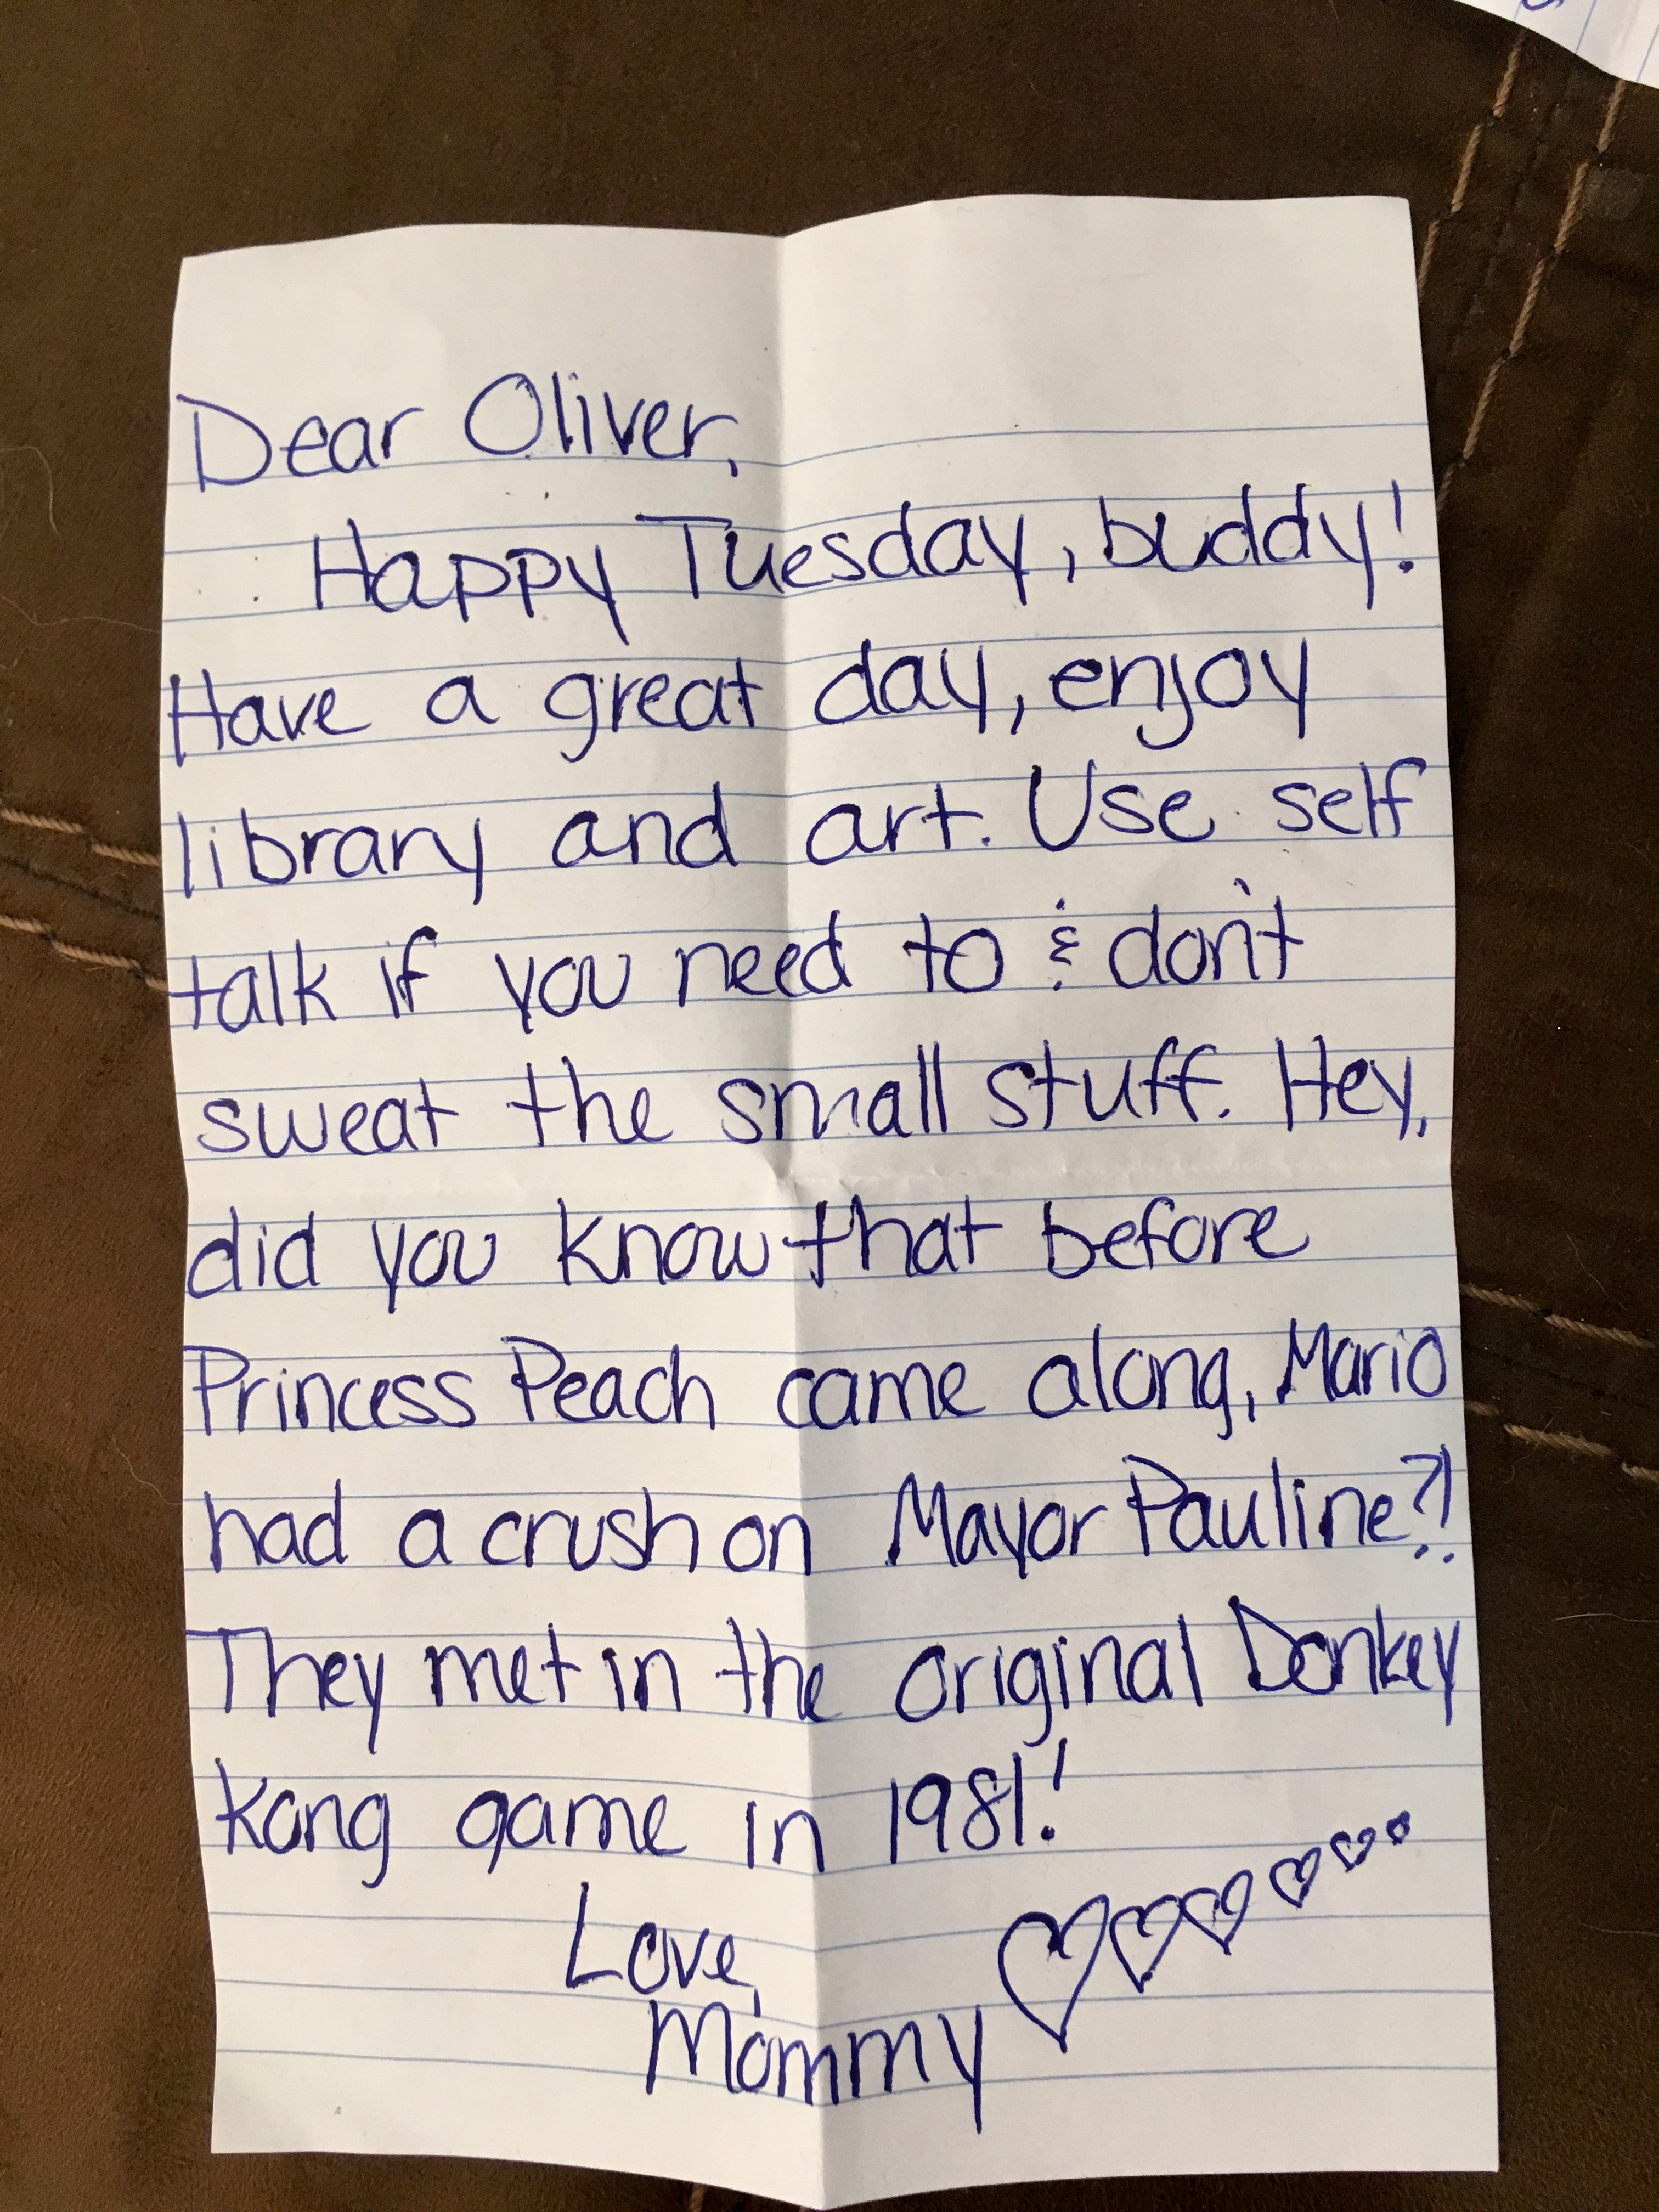 Dear Oliver,
Happy Tuesday, buddy!
Have a great day, enjoy
library and art. Use self
talk if you need to & don't
sweat the small stuff. Hey,
did you know that before
Princess Peach came along, Mario
had a crush on Mayor Pauline?!
They met in the original Donkey
Kong game in 1981!
Love,
Mommy